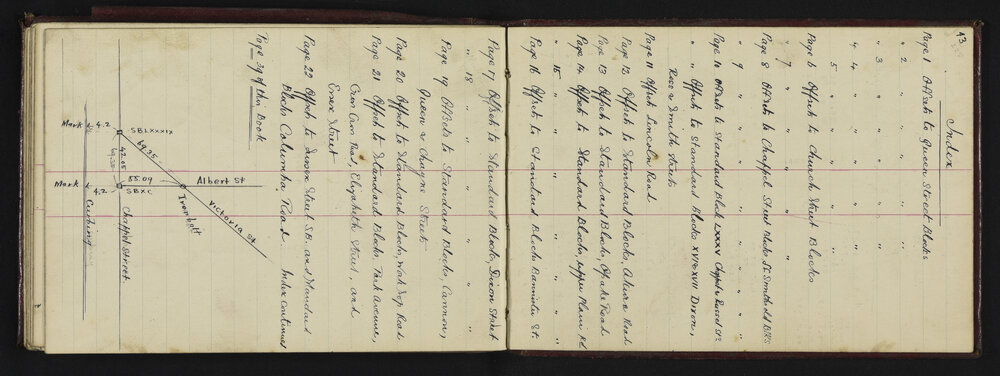 43
Index
Page 1 Offsets to Queen Street Blocks
" 2 " " " "
" 3 " " " "
" 4 " " " "
" 5 " " " "
Page 6 Offset to Church Street Blocks
" 7 " " " "
Page 8 Offsets to Chappel Street Blocks
" 9 " " " "
Page 10 Offsets to Standard Block LXXXV Chappel & Russell Sts
" Offset to Standard Blocks XVI & XVII Dixon,
Rees & Smith Streets
Page 11 Offset Lincoln Road
Page 12 Offset to Standard Blocks, Akura Road
Page 13 Offset to Standard Blocks, Opaki Road
Page 14 Offset to Standard Blocks, Upper Plain Rd
" 15 " " " "
Page 16 Offset to Standard Blocks Bannister St.
Page 17 Offset to Standard Blocks, Dixon Street
" 18 " " " "
Page 19 Offsets to Standard Blocks, Cannon,
Queen & Cheyne Streets
Page 20 Offset to Standard Blocks, Worksop Road
Page 21 Offset to Standard Blocks, Park Avenue,
Oran Road, Elizabeth Street and
Essex Street
Page 22 Offset to Dixon Street S.B. and Standard
Blocks Columba Road. Index Continued
Page 39 of this Book
Mark 4.2
SB LXXXIX
69.35
42.05
69.30
55.09
Albert St
Mark 4.2
SB XC
Iron bolt
Victoria St
Chappel Street
Curbing